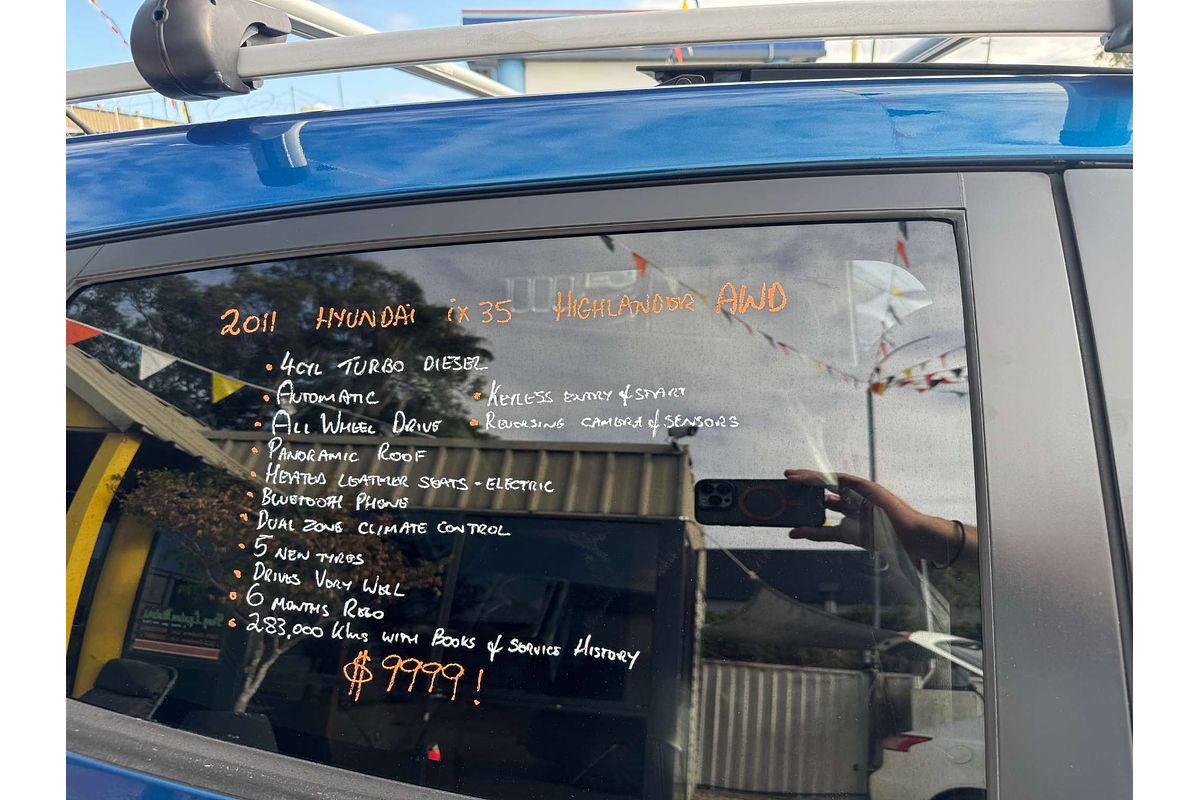 2011 HYUNDAI ix35 HIGHLANDER AWD
• 4CYL TURBO DIESEL
• AUTOMATIC • KEYLESS ENTRY & START
• ALL WHEEL DRIVE • REVERSING CAMERA & SENSORS
• PANORAMIC ROOF
• HEATED LEATHER SEATS - ELECTRIC
• BLUETOOTH PHONE
• DUAL ZONE CLIMATE CONTROL
• 5 NEW TYRES
• DRIVES VERY WELL
• 6 MONTHS REGO
• 283,000 Kms WITH BOOKS & SERVICE HISTORY
$9999!